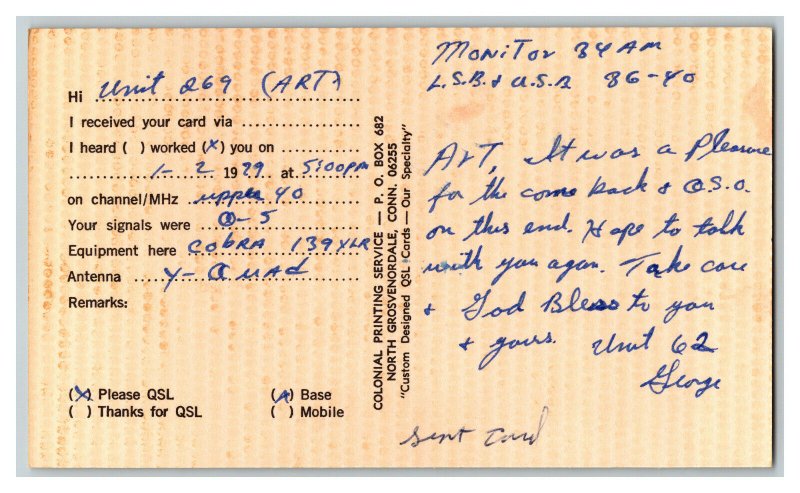 Hi Unit 269 (ART)
I received your card via
I heard ( ) worked (X) you on
1-2 1979 at 5:00pm
on channel/MHz upper 40
Your signals were Q-5
Equipment here CobRA 139XLR
Antenna Y-Quad
Remarks:
(X) Please QSL
( ) Thanks for QSL
(X) Base
( ) Mobile
COLONIAL PRINTING SERVICE — P. O. BOX 682
NORTH GROSVENORDALE, CONN. 06255
"Custom Designed QSL Cards — Our Specialty"
MONITOR 34 AM
L.S.B. & U.S.B 36-40
ART, It was a Pleasure
for the come back & Q.S.O.
on this end. Hope to talk
with you again. Take care
& God Bless to you
& yours. Unit 62
George
sent card